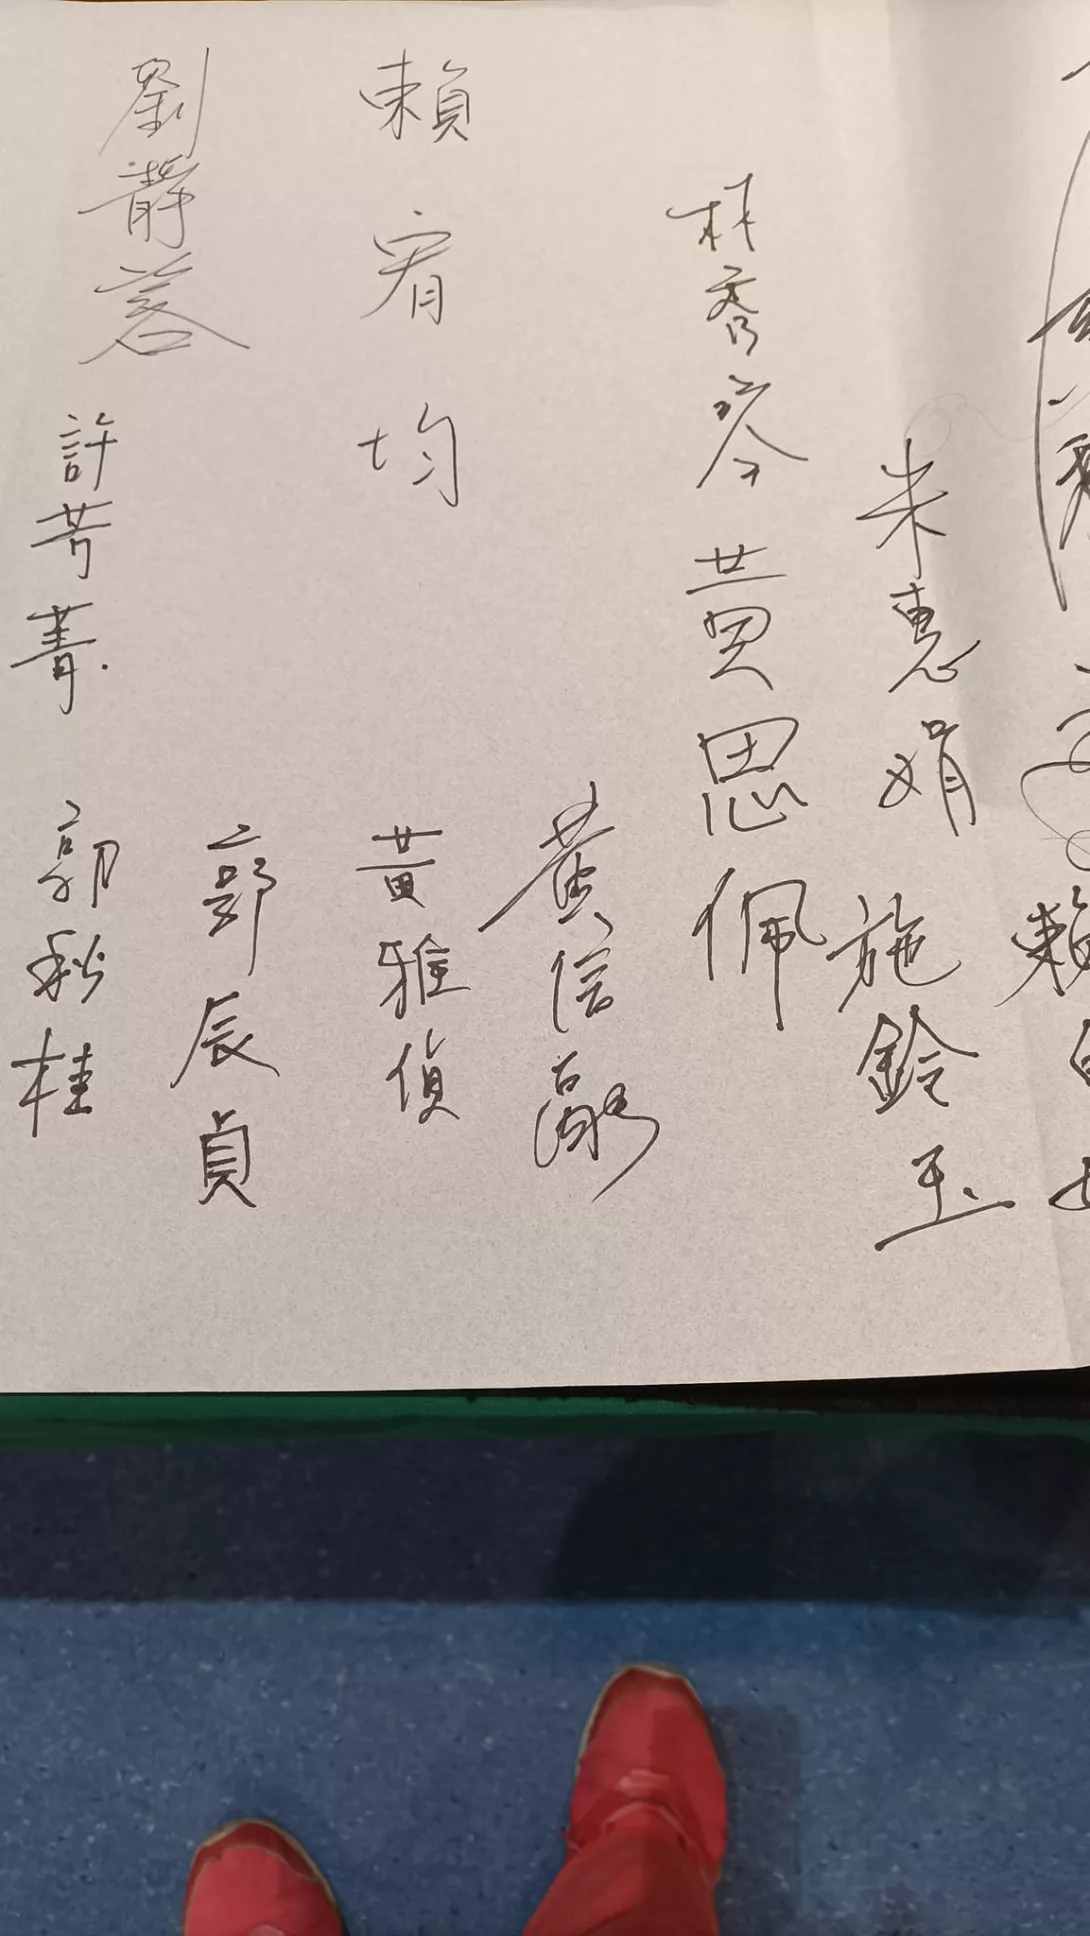 朱惠娟
施鈴玉
林秀琴
黃思佩
黃信
賴宥均
黃雅偵
郭辰貞
劉靜蓉
許芳菁
郭秋桂